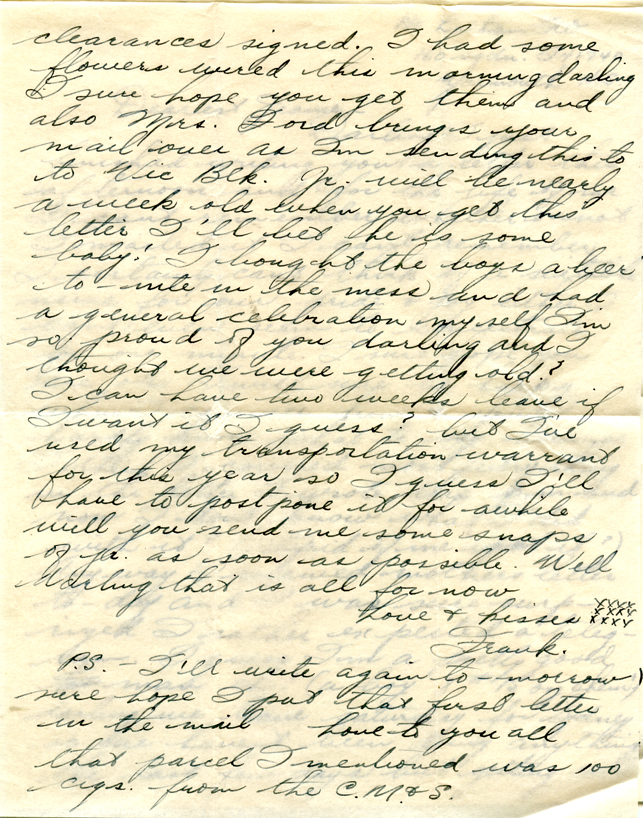 clearances signed. I had some
flowers wired this morning darling
I sure hope you get them and
also Mrs. Ford brings your
mail over as I'm sending this to
to Vic Blk. Jr. will be nearly
a week old when you get this
letter I'll bet he is some
baby! I bought the boys a beer
to-nite in the mess and had
a general celebration myself I'm
so proud of you darling and I
thought we were getting old?
I can have two weeks leave if
I want it I guess? but I've
used my transportation warrant
for this year so I guess I'll
have to postpone it for awhile
will you send me some snaps
of Jr. as soon as possible. Well
Darling that is all for now
Love & kisses xxxx
xxxx
xxxx
Frank.
P.S. - I'll write again to-morrow
sure hope I put that first letter
in the mail love to you all
that parcel I mentioned was 100
cigs. from the C.M.&S.